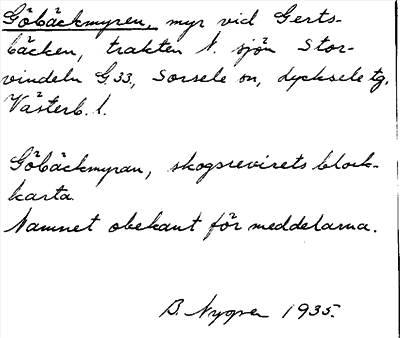 Göbäckmyren, myr vid Gerts-
bäcken, trakten N. sjön Stor-
vindeln G.33, Sorsele sn, Lycksele tg,
Västerb. l.
Göbäckmyran, skogsrevirets block-
karta
Namnet obekant för meddelarna.
B. Nygren 1935.